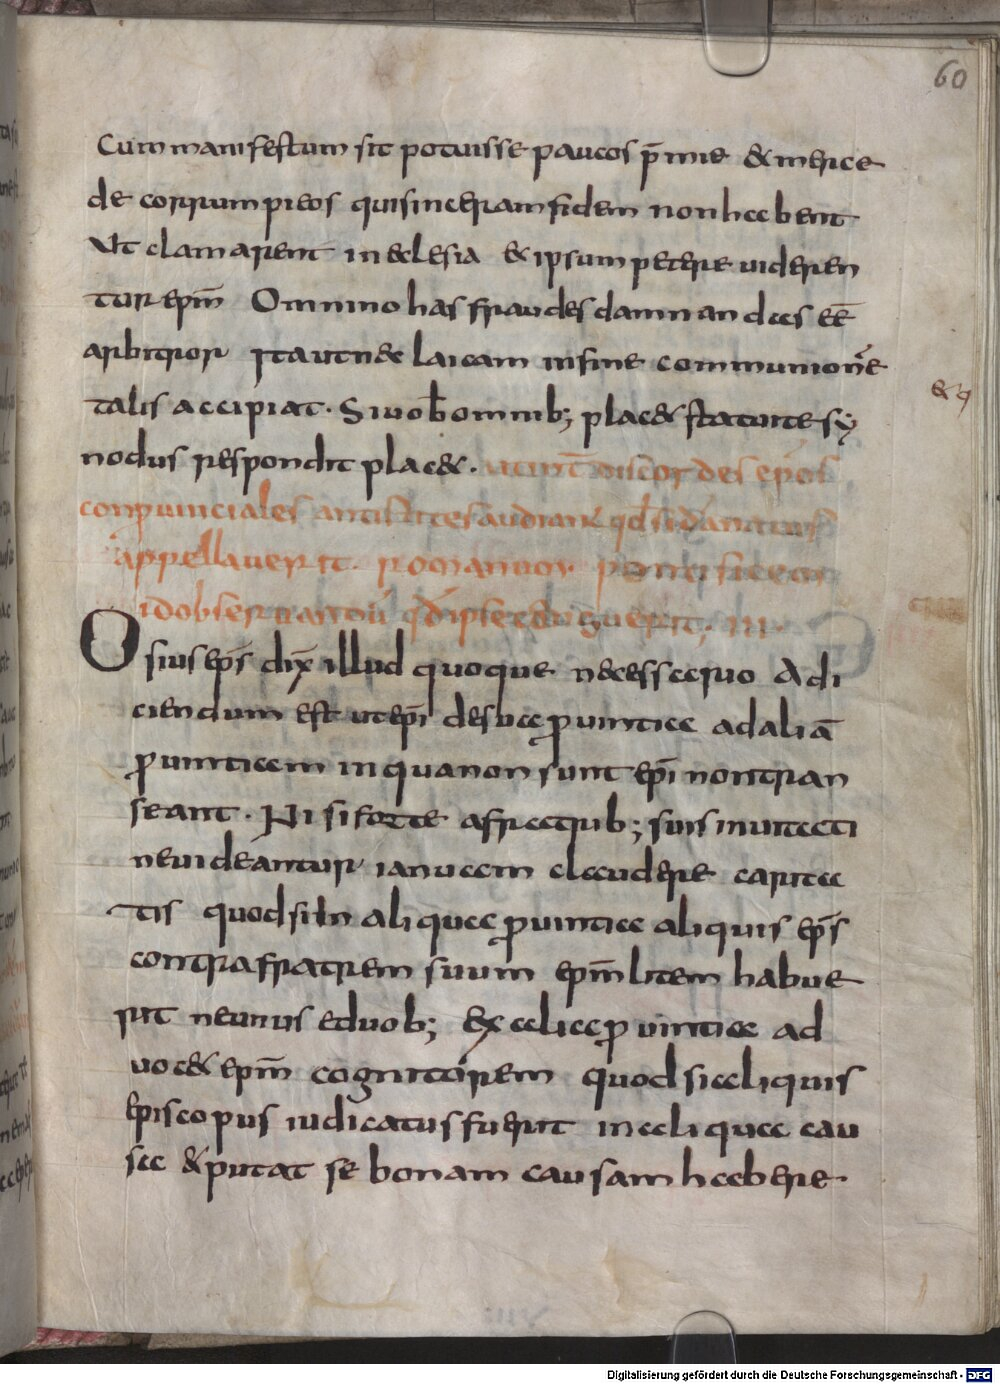 60
Cum manifestum sit potuisse paucos p̄mie & merce
de corrumpi eos qui sinceram fidem non habent
Ut clamarent in eclesia & ipsum petere uideren
tur ep̄m Omnino has fraudes damnandas eē
arbitror Ita ut n& laicam in fine communionē
talis accipiat. Si uob̄ omnib; plac& statuite sy
nodus respondit plac&. ut int̄ discordes ep̄os
conpuinciales antistites audiant qd si damnatus
appellauerit romanuor pontificem
id obseruandū qd̄ ipse
Osius ep̄s dix̄ illud quoque necessario Adi
ciendum est ut ep̄i de sua ꝓuintia ad aliā
ꝓuintiam in qua non sunt ep̄i non tran
seant. Nisi forte a fratrib; suis inuitati
ne uideantur ianuam claudere carita
tis quod si in aliqua ꝓuintia aliquis ep̄s
contra fratrem suum ep̄m litem habue
rit ne unus e duob; Ex alia ꝓuintia ad
uoc& ep̄m cognitorem quod si aliquis
episcopus iudicatus fuerit in aliqua cau
sa & putat se bonam causam habere.
Digitalisierung gefördert durch die Deutsche Forschungsgemeinschaft - DFG